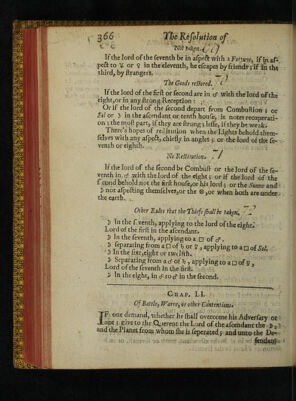 366 The Resolution of
Not taken.
If the lord of the seventh be in aspect with a Fortune, if in as-
pect to ☿ or ♀ in the eleventh, he escapes by friends; if in the
third, by strangers.
The Goods restored.
If the lord of the first or second are in ☌ with the lord of the
eight, or in any strong Reception:
Or if the lord of the second depart from Combustion: or
Sol or ☽ in the ascendant or tenth house, it notes recoperati-
on; the most part, if they are strong; lesse, if they be weak.
There's hopes of restitution when the Lights behold them-
selves with any aspect, chiefly in angles; or the lord of the se-
venth or eighth.
No Restitution.
If the lord of the second be Combust or the lord of the se-
venth in ☌ with the lord of the eight; or if the lord of the
second behold not the first house, or his lord; or the Sunne and
☽ not aspecting themselves, or the ⊕, or when both are under
the earth.
Other Rules that the Thiefe shall be taken.
☽ In the seventh, applying to the lord of the eight.
Lord of the first in the ascendant.
☽ In the seventh, applying to a □ of ♂.
☽ separating from a □ of ♄ or ☿, applying to a □ of Sol.
☽ In the sixt, eight or twelfth.
☽ Separating from a ☍ of ♄, applying to a □ of ☿,
Lord of the seventh in the first.
☽ In the eight, in ☍ to ♂ in the second.
CHAP. LI.
Of Battle, Warre, or other Contentions.
IF one demand, whether he shall overcome his Adversary or
not; give to the Querent the Lord of the ascendant the ☽,
and the Planet from whom she is seperated; and unto the De-
fendant